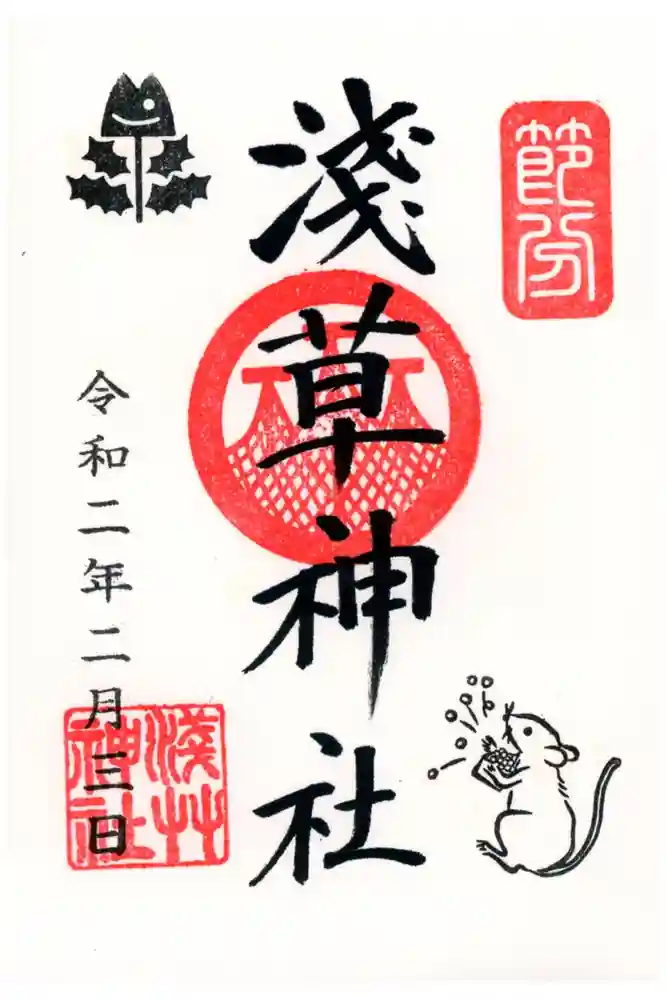 節分
淺草神社
令和二年二月三日
淺草
神社